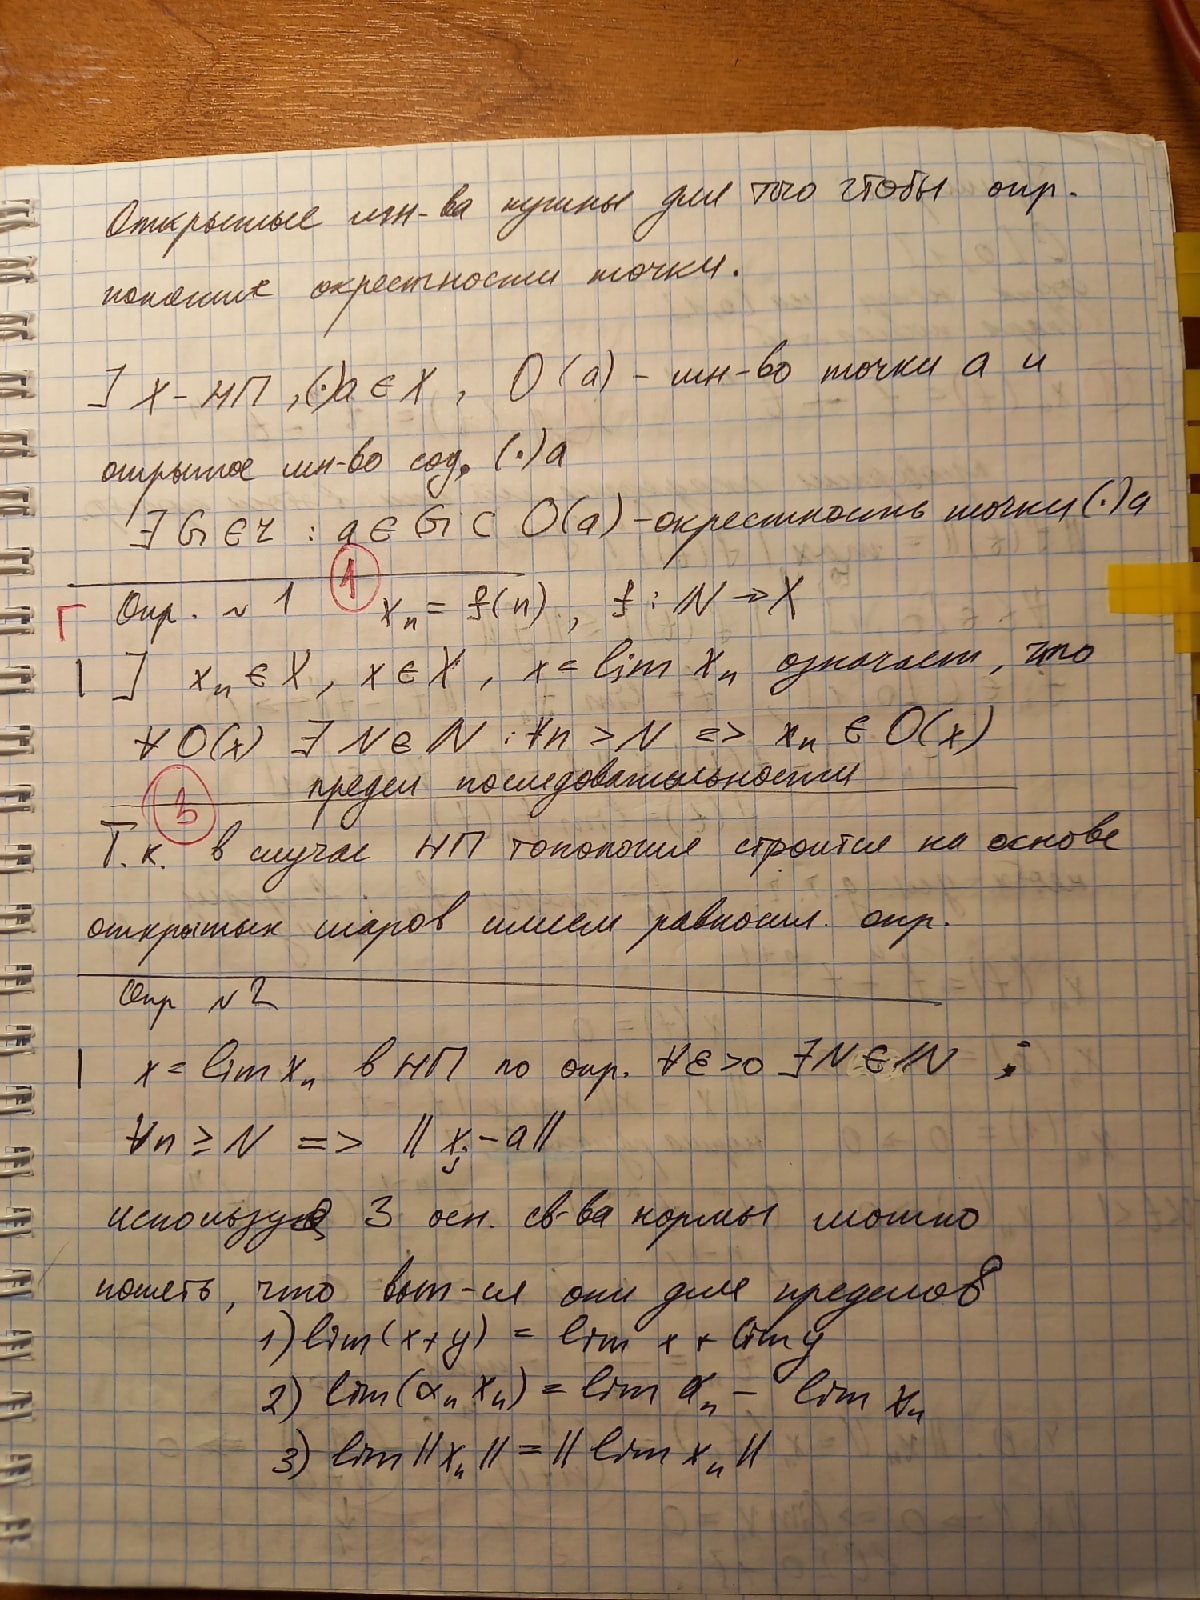 Открытые мн-ва нужны для того чтобы опр.
понятие окрестности точки.
] X - НП, (·)a ∈ X, O(a) - мн-во точки a и
открытое мн-во сод. (·)a
∃ G ∈ τ : a ∈ G ⊂ O(a) - окрестность точки (·)a
Опр. ~ 1 ① xₙ = f(n), f : N → X
] xₙ ∈ X, x ∈ X, x = lim xₙ означает, что
∀ O(x) ∃ N ∈ ℕ : ∀n > N => xₙ ∈ O(x)
предел последовательности
3
Т.к. в случае НП топология строится на основе
открытых шаров имеем равносил. опр.
Опр ~ 2
x = lim xₙ в НП по опр. ∀ε>0 ∃N ∈ ℕ ;
∀n ≥ N => || xⱼ - a ||
используя 3 осн. св-ва нормы можно
, что вып-ся они для пределов
1) lim(x+y) = lim x + lim y
2) lim(αₙ xₙ) = lim αₙ - lim xₙ
3) lim || xₙ || = || lim xₙ ||